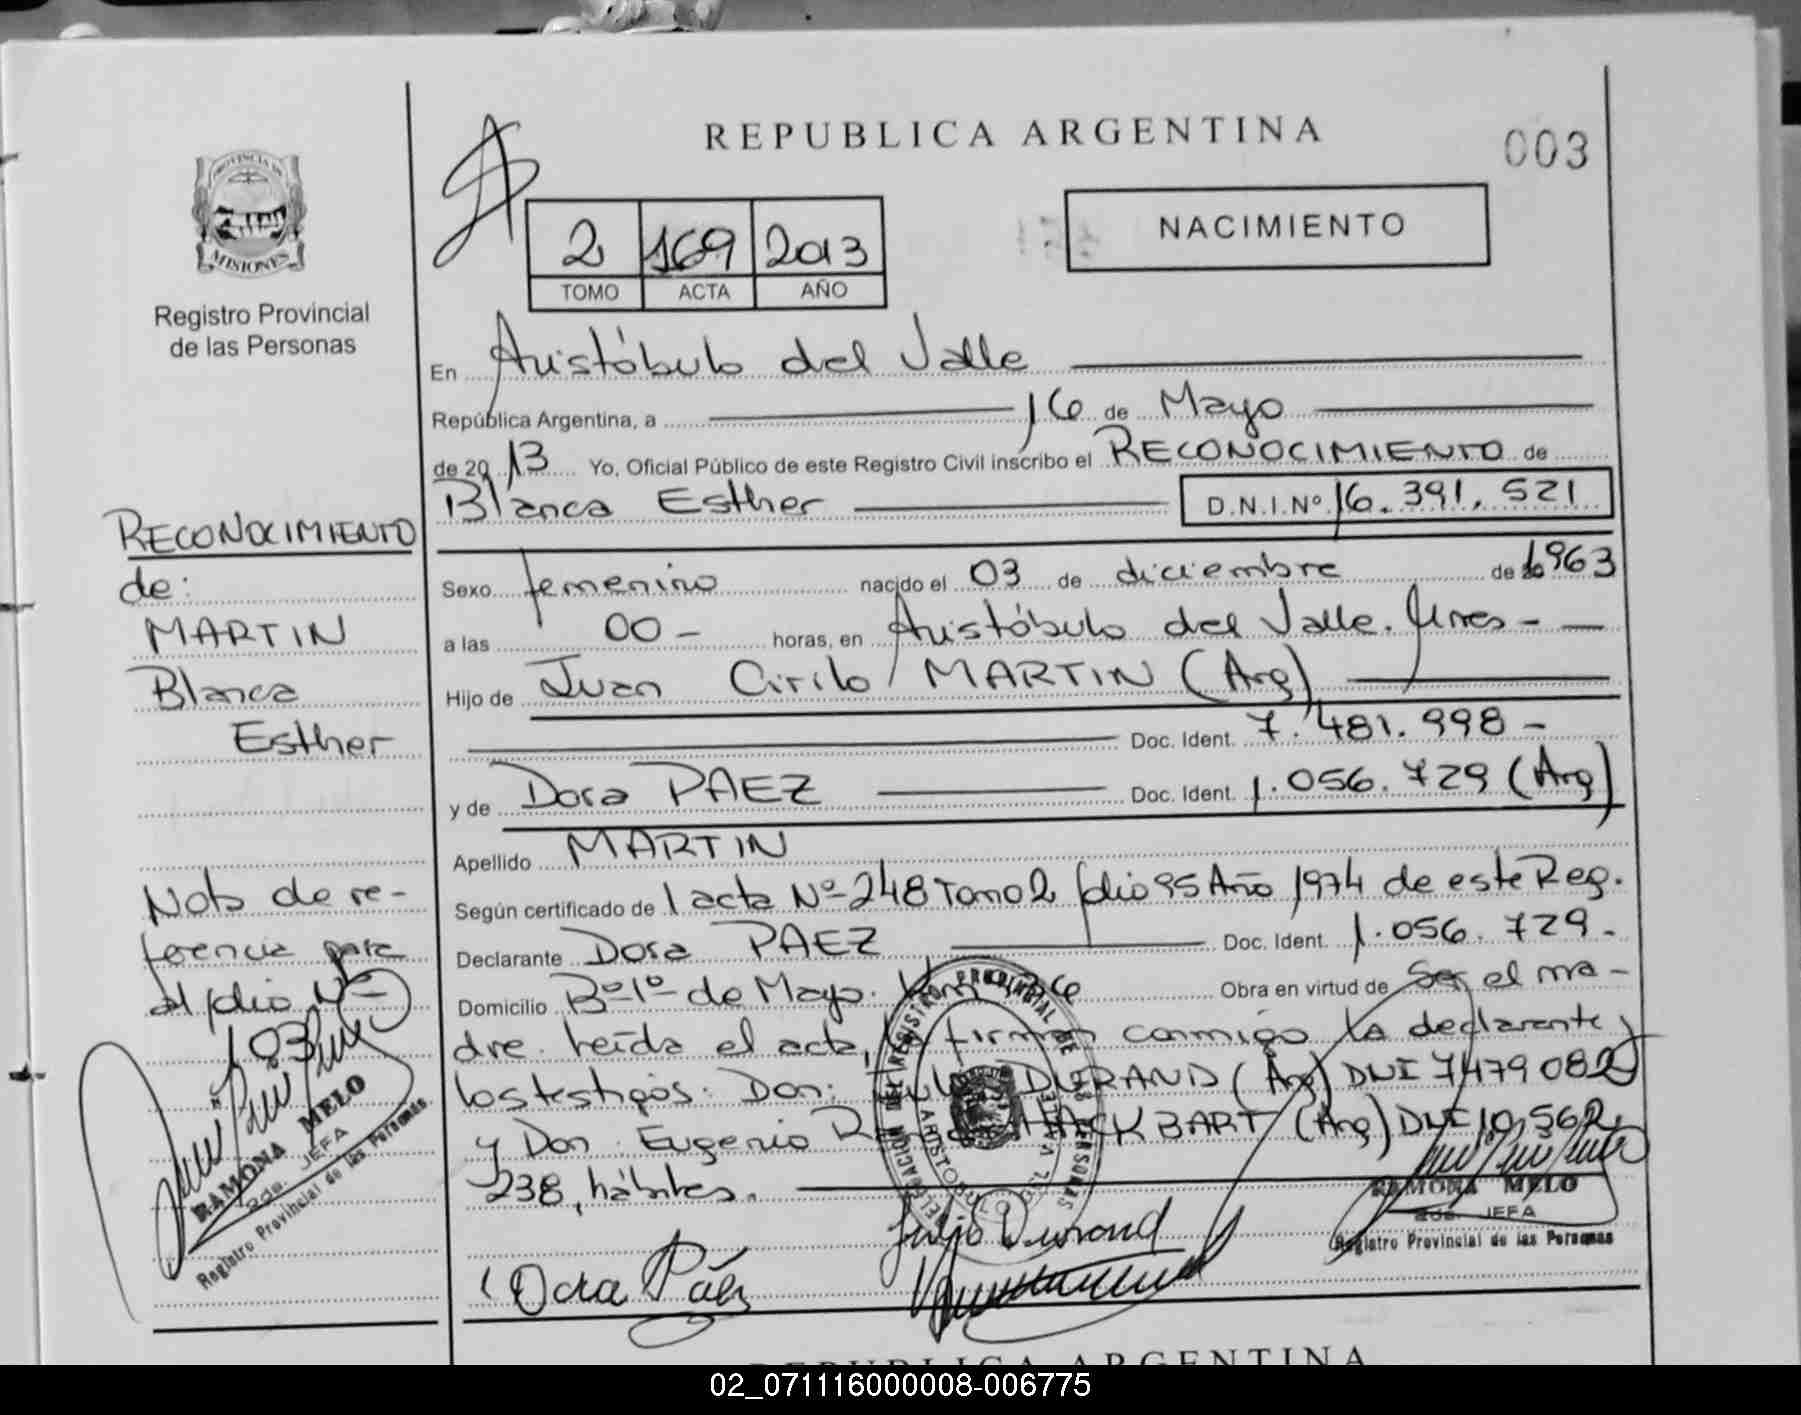 REPUBLICA ARGENTINA
003
PROVINCIA DE
MISIONES
Registro Provincial
de las Personas
2 169 2013
TOMO ACTA AÑO
NACIMIENTO
En Aristóbulo del Valle
República Argentina, a 16 de Mayo
de 2013 Yo, Oficial Público de este Registro Civil inscribo el RECONOCIMIENTO de
Blanca Esther D.N.I.Nº 16.391.521
Sexo femenino nacido el 03 de diciembre de 1963
a las 00 - horas, en Aristóbulo del Valle. Mnes -
Hijo de Juan Cirilo MARTIN (Arg)
Doc. Ident. 7.481.998 -
y de Dora PAEZ Doc. Ident. 1.056.729 (Arg)
Apellido MARTIN
Según certificado de 1 acta Nº 248 Tomo 2 folio 95 Año 1974 de este Reg.
Declarante Dora PAEZ Doc. Ident. 1.056.729 -
Domicilio Bº 1º de Mayo. Km Obra en virtud de Ser el ma-
dre. Leída el acta, firman conmigo la declarante y
los testigos: Don: DURAND (Arg) DNI 7479082
y Don Eugenio HACKBART (Arg) DNI 10.562.
238, hábiles.
RECONOCIMIENTO
de:
MARTIN
Blanca
Esther
Nota de re-
ferencia para
el folio Nº
103
RAMONA MELO
2da. JEFA
Registro Provincial de las Personas
DELEGACION DEL REGISTRO PROVINCIAL DE LAS PERSONAS
ARISTOBULO DEL VALLE
RAMONA MELO
2da. JEFA
Registro Provincial de las Personas
Julio Durand
Dora Páez
REPUBLICA ARGENTINA
02_071116000008-006775